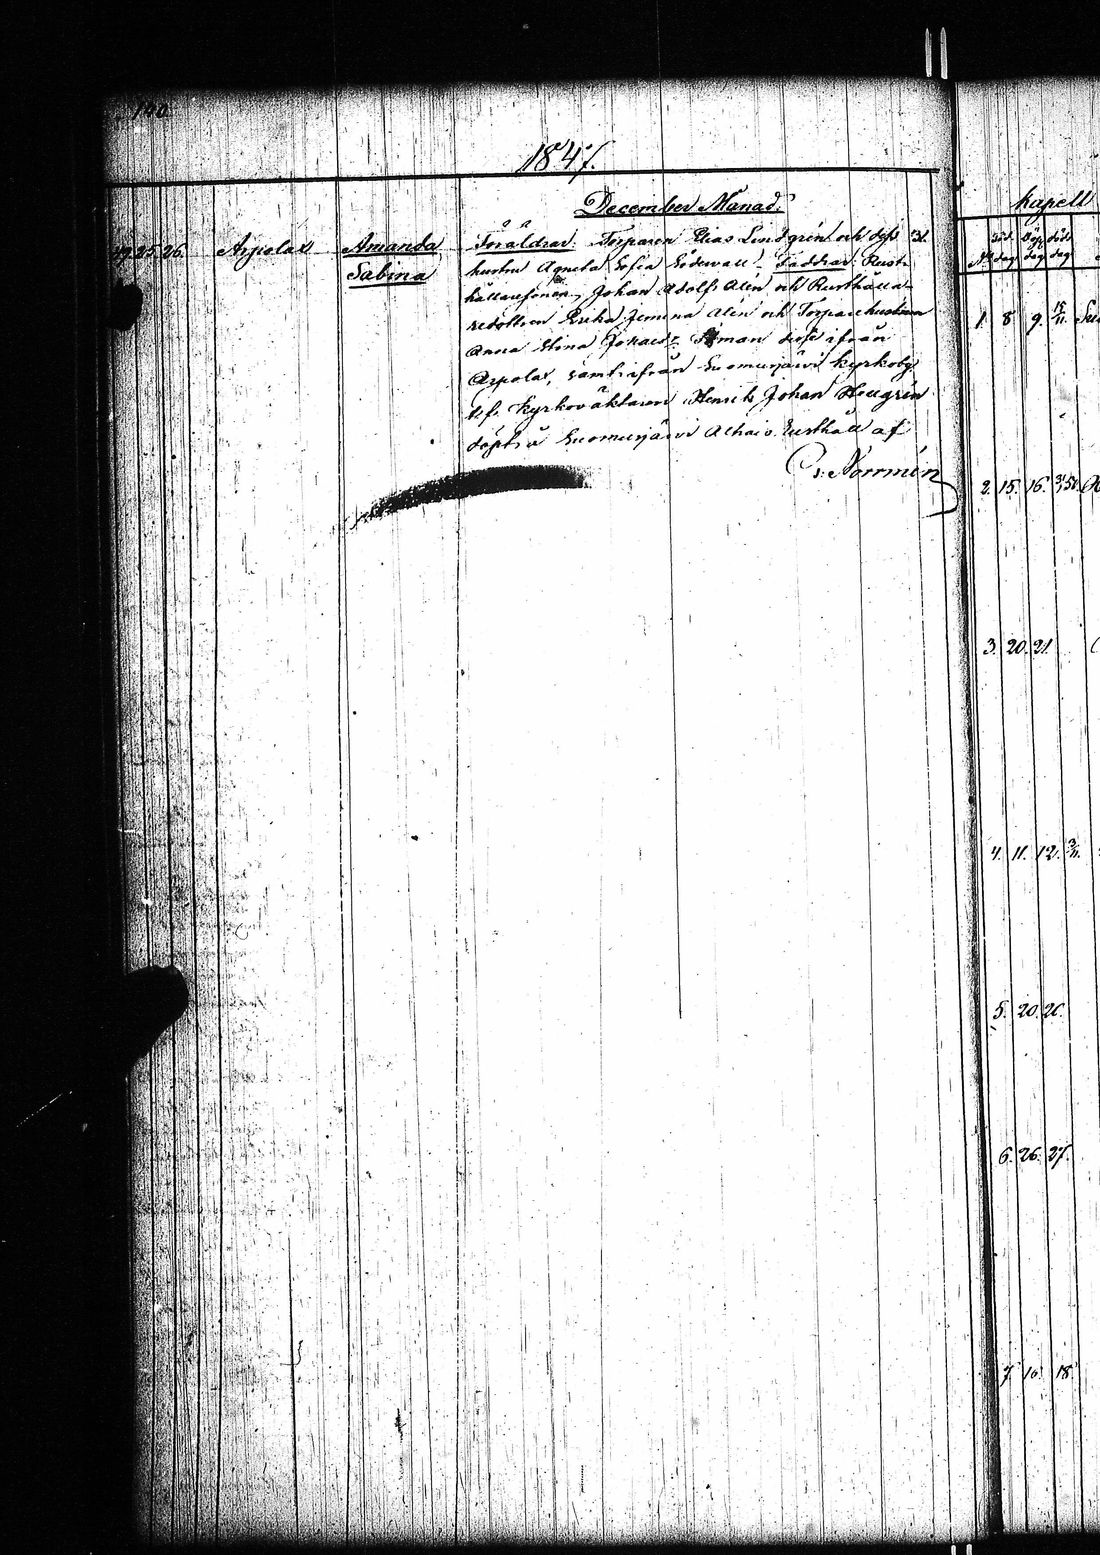 140.
1847.
December Månad.
25. 26. Arpolax Amanda Föräldrar: Torparen Elias Lindgrén och dess 31.
Sabina hustru Agneta Sofia Södervall. Faddrar: Rust-
hållaresonen Johan Adolf Alén och Rusthålla-
redottren Erika Jemina Alén och Torparehustrun
Anna Stina Johansd:r
Arpolax, samt ifrån Suomusjärvi kyrkoby
t.f. Kyrkoväktaren Henrik Johan Hellgrén
döpt å Suomusjärvi Rusthåll af
Norrmén
Kapell
N:o Föd. dag Döp. dag död. dag
1. 8 9. 15/11.
2. 15. 16.
3. 20. 21.
4. 11. 12. 3/11.
5. 20. 26.
6. 26. 27.
7. 10. 18.